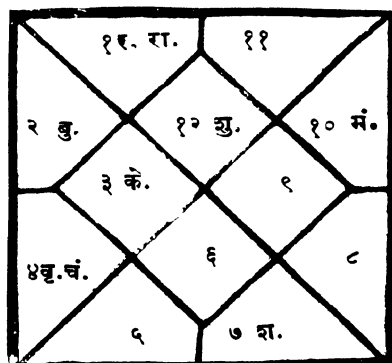 १र. रा. ११
२ बु. १२ शु. १० मं.
३ के. ९
४बृ.चं. ६ ८
५ ७ श.